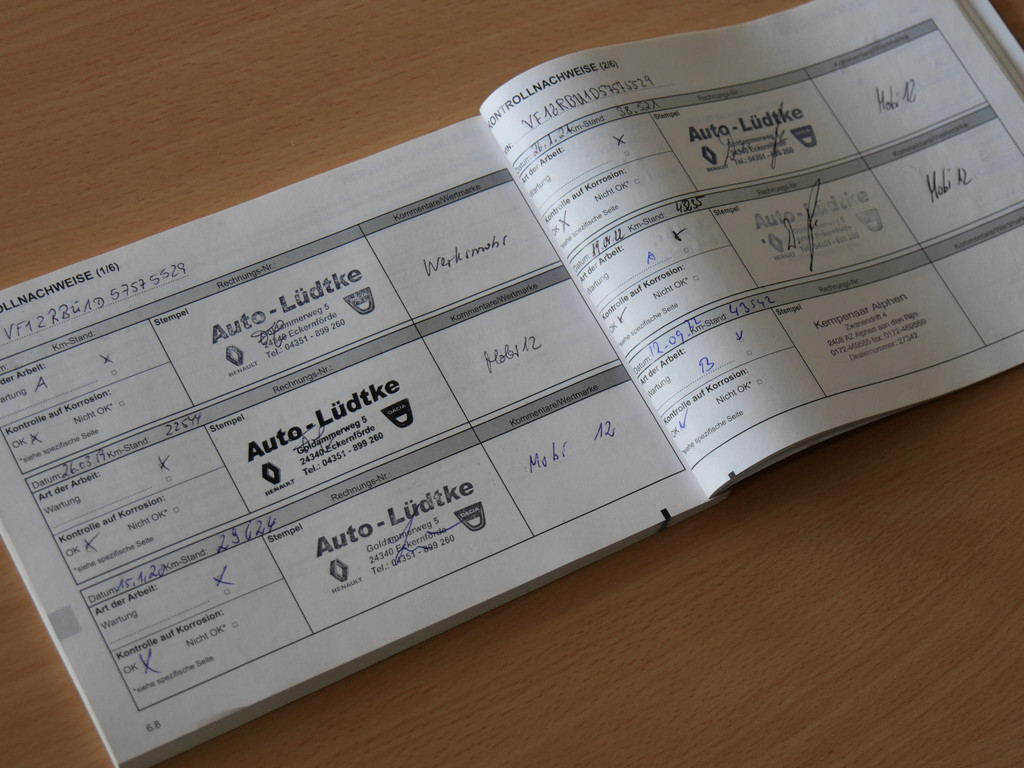 OLLNACHWEISE (1/6)
VF12RBU1D57575529
Km-Stand:
Rechnungs-Nr.:
Kommentare/Wertmarke
der Arbeit:
X
Wartung A
Kontrolle auf Korrosion:
OK X Nicht OK*
*siehe spezifische Seite
Stempel
Auto-Lüdtke
Goldammerweg 5
24340 Eckernförde
Tel.: 04351 - 899 260
RENAULT
Datum: 26.03.19 Km-Stand:
Rechnungs-Nr.:
Kommentare/Wertmarke
Art der Arbeit:
X
Wartung
Kontrolle auf Korrosion:
OK X Nicht OK*
*siehe spezifische Seite
Stempel
Auto-Lüdtke
Goldammerweg 5
24340 Eckernförde
Tel.: 04351 - 899 260
RENAULT
DACIA
Mobi 12
Datum: 15.1.20 Km-Stand: 29624
Rechnungs-Nr.:
Kommentare/Wertmarke
Art der Arbeit:
X
Wartung
Kontrolle auf Korrosion:
OK X Nicht OK*
*siehe spezifische Seite
Stempel
Auto-Lüdtke
Goldammerweg 5
24340 Eckernförde
Tel.: 04351 - 899 260
RENAULT
DACIA
Mobi 12
6.8
KONTROLLNACHWEISE (2/6)
VF12RBU1D57575529
Datum: 26.1.21 Km-Stand:
Rechnungs-Nr.:
Kommentare/Wertmarke
Art der Arbeit:
X
Wartung
Kontrolle auf Korrosion:
OK X Nicht OK*
*siehe spezifische Seite
Stempel
Auto-Lüdtke
Eckernförde
Tel.: 04351 - 899 260
Mobi 12
Km-Stand:
Rechnungs-Nr.
Kommentare/Wertmarke
Art der Arbeit:
Wartung A
Kontrolle auf Korrosion:
OK Nicht OK*
*siehe spezifische Seite
Stempel
Auto-Lüdtke
Mobi 12
Datum: 12.09.22 Km-Stand: 43542
Rechnungs-Nr.
Kommentare/Wertmarke
Art der Arbeit:
Wartung B
Kontrolle auf Korrosion:
OK Nicht OK*
*siehe spezifische Seite
Stempel
Kempenaar Alphen
2408 AZ Alphen aan den Rijn
Dealernummer: 27342